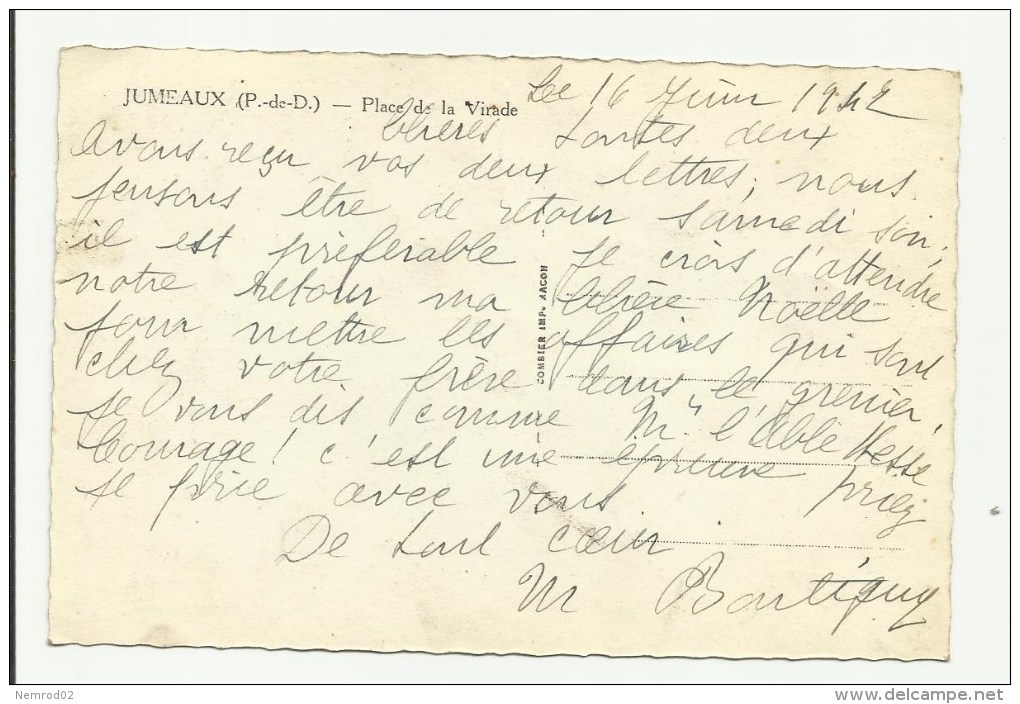 JUMEAUX (P.-de-D.) — Place de la Virade
Le 16 Juin 1942
Chères toutes deux
Avons reçu vos deux lettres, nous
pensons être de retour samedi soir,
il est préférable je crois d'attendre
notre retour ma chère Noëlle
pour mettre les affaires qui sont
chez votre frère dans le grenier,
je vous dis comme Mr l'abbé Hesse
Courage! c'est une épreuve priez
je prie avec vous
De tout cœur
M
COMBIER IMP. MACON
Nemrod02
www.delcampe.net